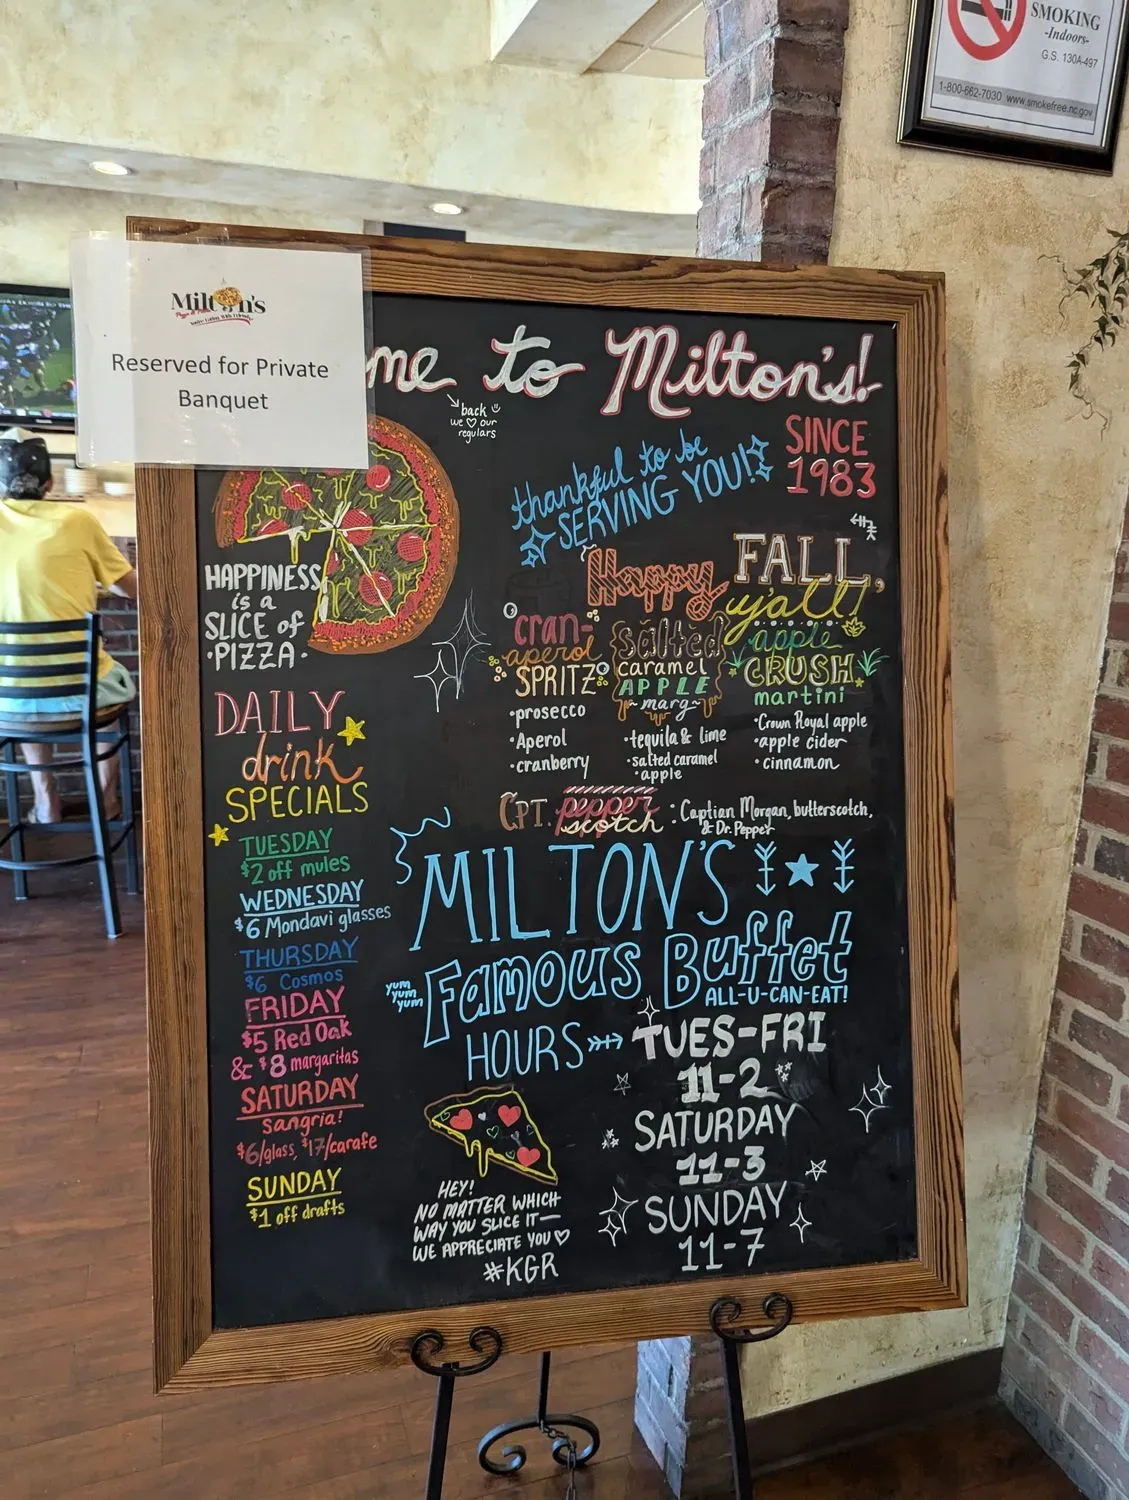 SMOKING
-Indoors-
G.S. 130A-497
1-800-662-7030 www.smokefree.nc.gov
Milton's
Reserved for Private
Banquet
me to Milton's!
back
we ♡ our
regulars
SINCE
1983
thankful to be
SERVING YOU!
HAPPINESS
is a
SLICE of
·PIZZA·
Happy FALL,
y'all!
cran-
aperol
SPRITZ
•prosecco
•Aperol
•cranberry
salted
caramel
APPLE
~marg~
•tequila & lime
•salted caramel
•apple
apple
CRUSH
martini
•Crown Royal apple
•apple cider
•cinnamon
CPT. pepper
scotch : Captian Morgan, butterscotch,
& Dr. Pepper
DAILY
drink
SPECIALS
TUESDAY
$2 off mules
WEDNESDAY
$6 Mondavi glasses
THURSDAY
$6 Cosmos
FRIDAY
$5 Red Oak
& $8 margaritas
SATURDAY
sangria!
$6/glass, $17/carafe
SUNDAY
$1 off drafts
MILTON'S
yum
yum
yum
Famous Buffet
ALL-U-CAN-EAT!
HOURS
TUES-FRI
11-2
SATURDAY
11-3
SUNDAY
11-7
HEY!
NO MATTER WHICH
WAY YOU SLICE IT—
WE APPRECIATE YOU ♡
#KGR